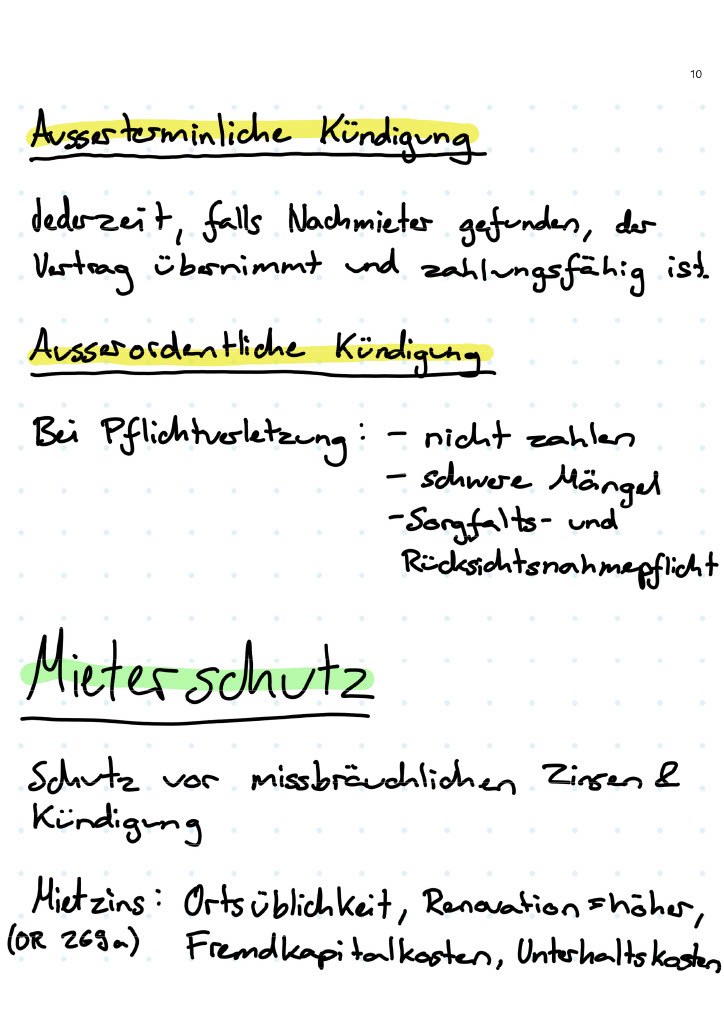 10
Ausserterminliche Kündigung
Jederzeit, falls Nachmieter gefunden, der
Vertrag übernimmt und zahlungsfähig ist.
Ausserordentliche Kündigung
Bei Pflichtverletzung: - nicht zahlen
- schwere Mängel
- Sorgfalts- und
Rücksichtsnahmepflicht
Mieterschutz
Schutz vor missbräuchlichen Zinsen &
Kündigung
Mietzins: Ortsüblichkeit, Renovation = höher,
(OR 269a) Fremdkapitalkosten, Unterhaltskosten